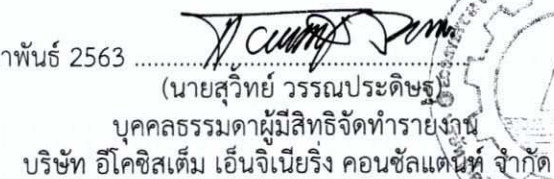 าพันธ์ 2563
(นายสุวิทย์ วรรณประดิษฐ)
บุคคลธรรมดาผู้มีสิทธิจัดทำรายงาน
บริษัท อีโคซิสเต็ม เอ็นจิเนียริ่ง คอนซัลแตนท์ จำกัด